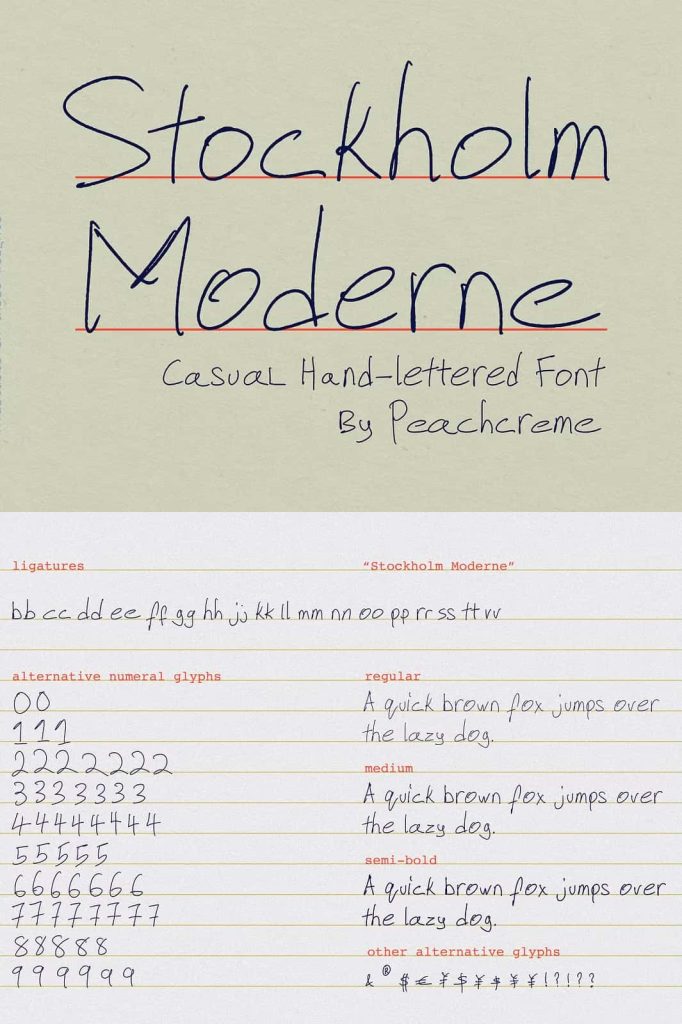 Stockholm
Moderne
Casual Hand-lettered Font
By Peachcreme
ligatures
"Stockholm Moderne"
bb cc dd ee ff gg hh jj kk ll mm nn oo pp rr ss tt vv
alternative numeral glyphs
00
111
2222222
3333333
44444444
55555
6666666
77777777
88888
999999
regular
A quick brown fox jumps over
the lazy dog.
medium
A quick brown fox jumps over
the lazy dog.
semi-bold
A quick brown fox jumps over
the lazy dog.
other alternative glyphs
& @ $ € ¥ $ ¥ $ ¥ ¥ ! ? ! ? ?